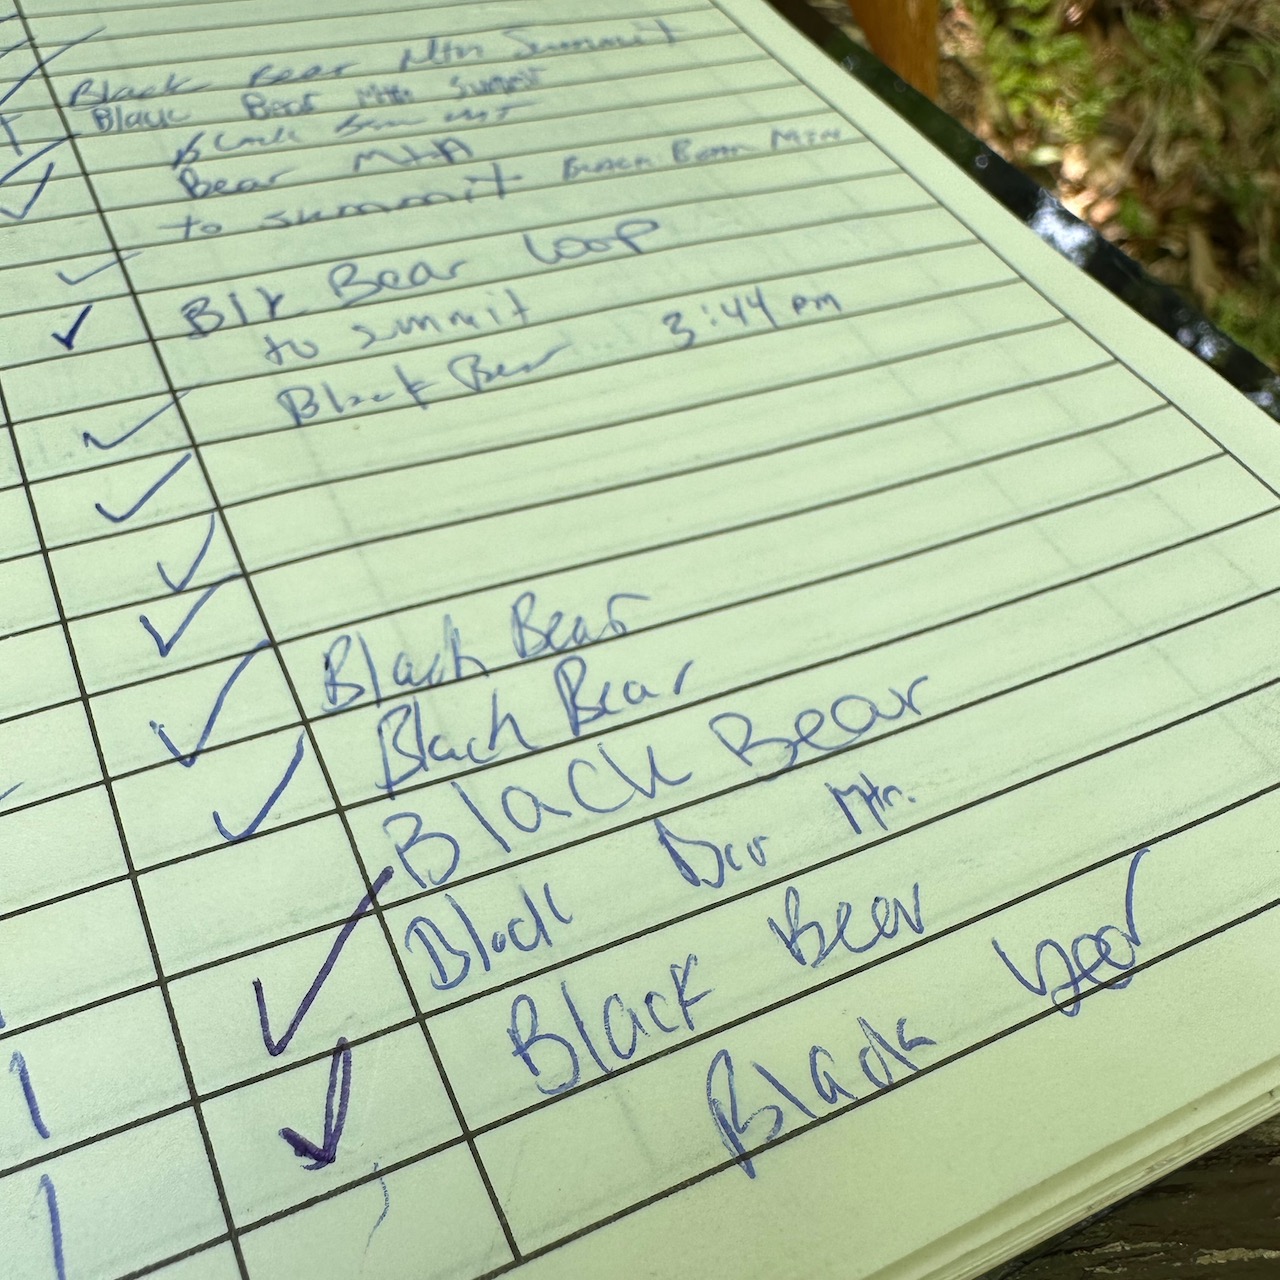 Black Bear Mtn Summit
Black Bear Mtn Summit
Black Bear MT
Bear Mtn
to summit Black Bear Mtn
Blk Bear Loop
to summit
Black Bear 3:44 pm
Black Bear
Black Bear
Black Bear
Black Bear Mtn.
Black Bear
Black bear
1
1